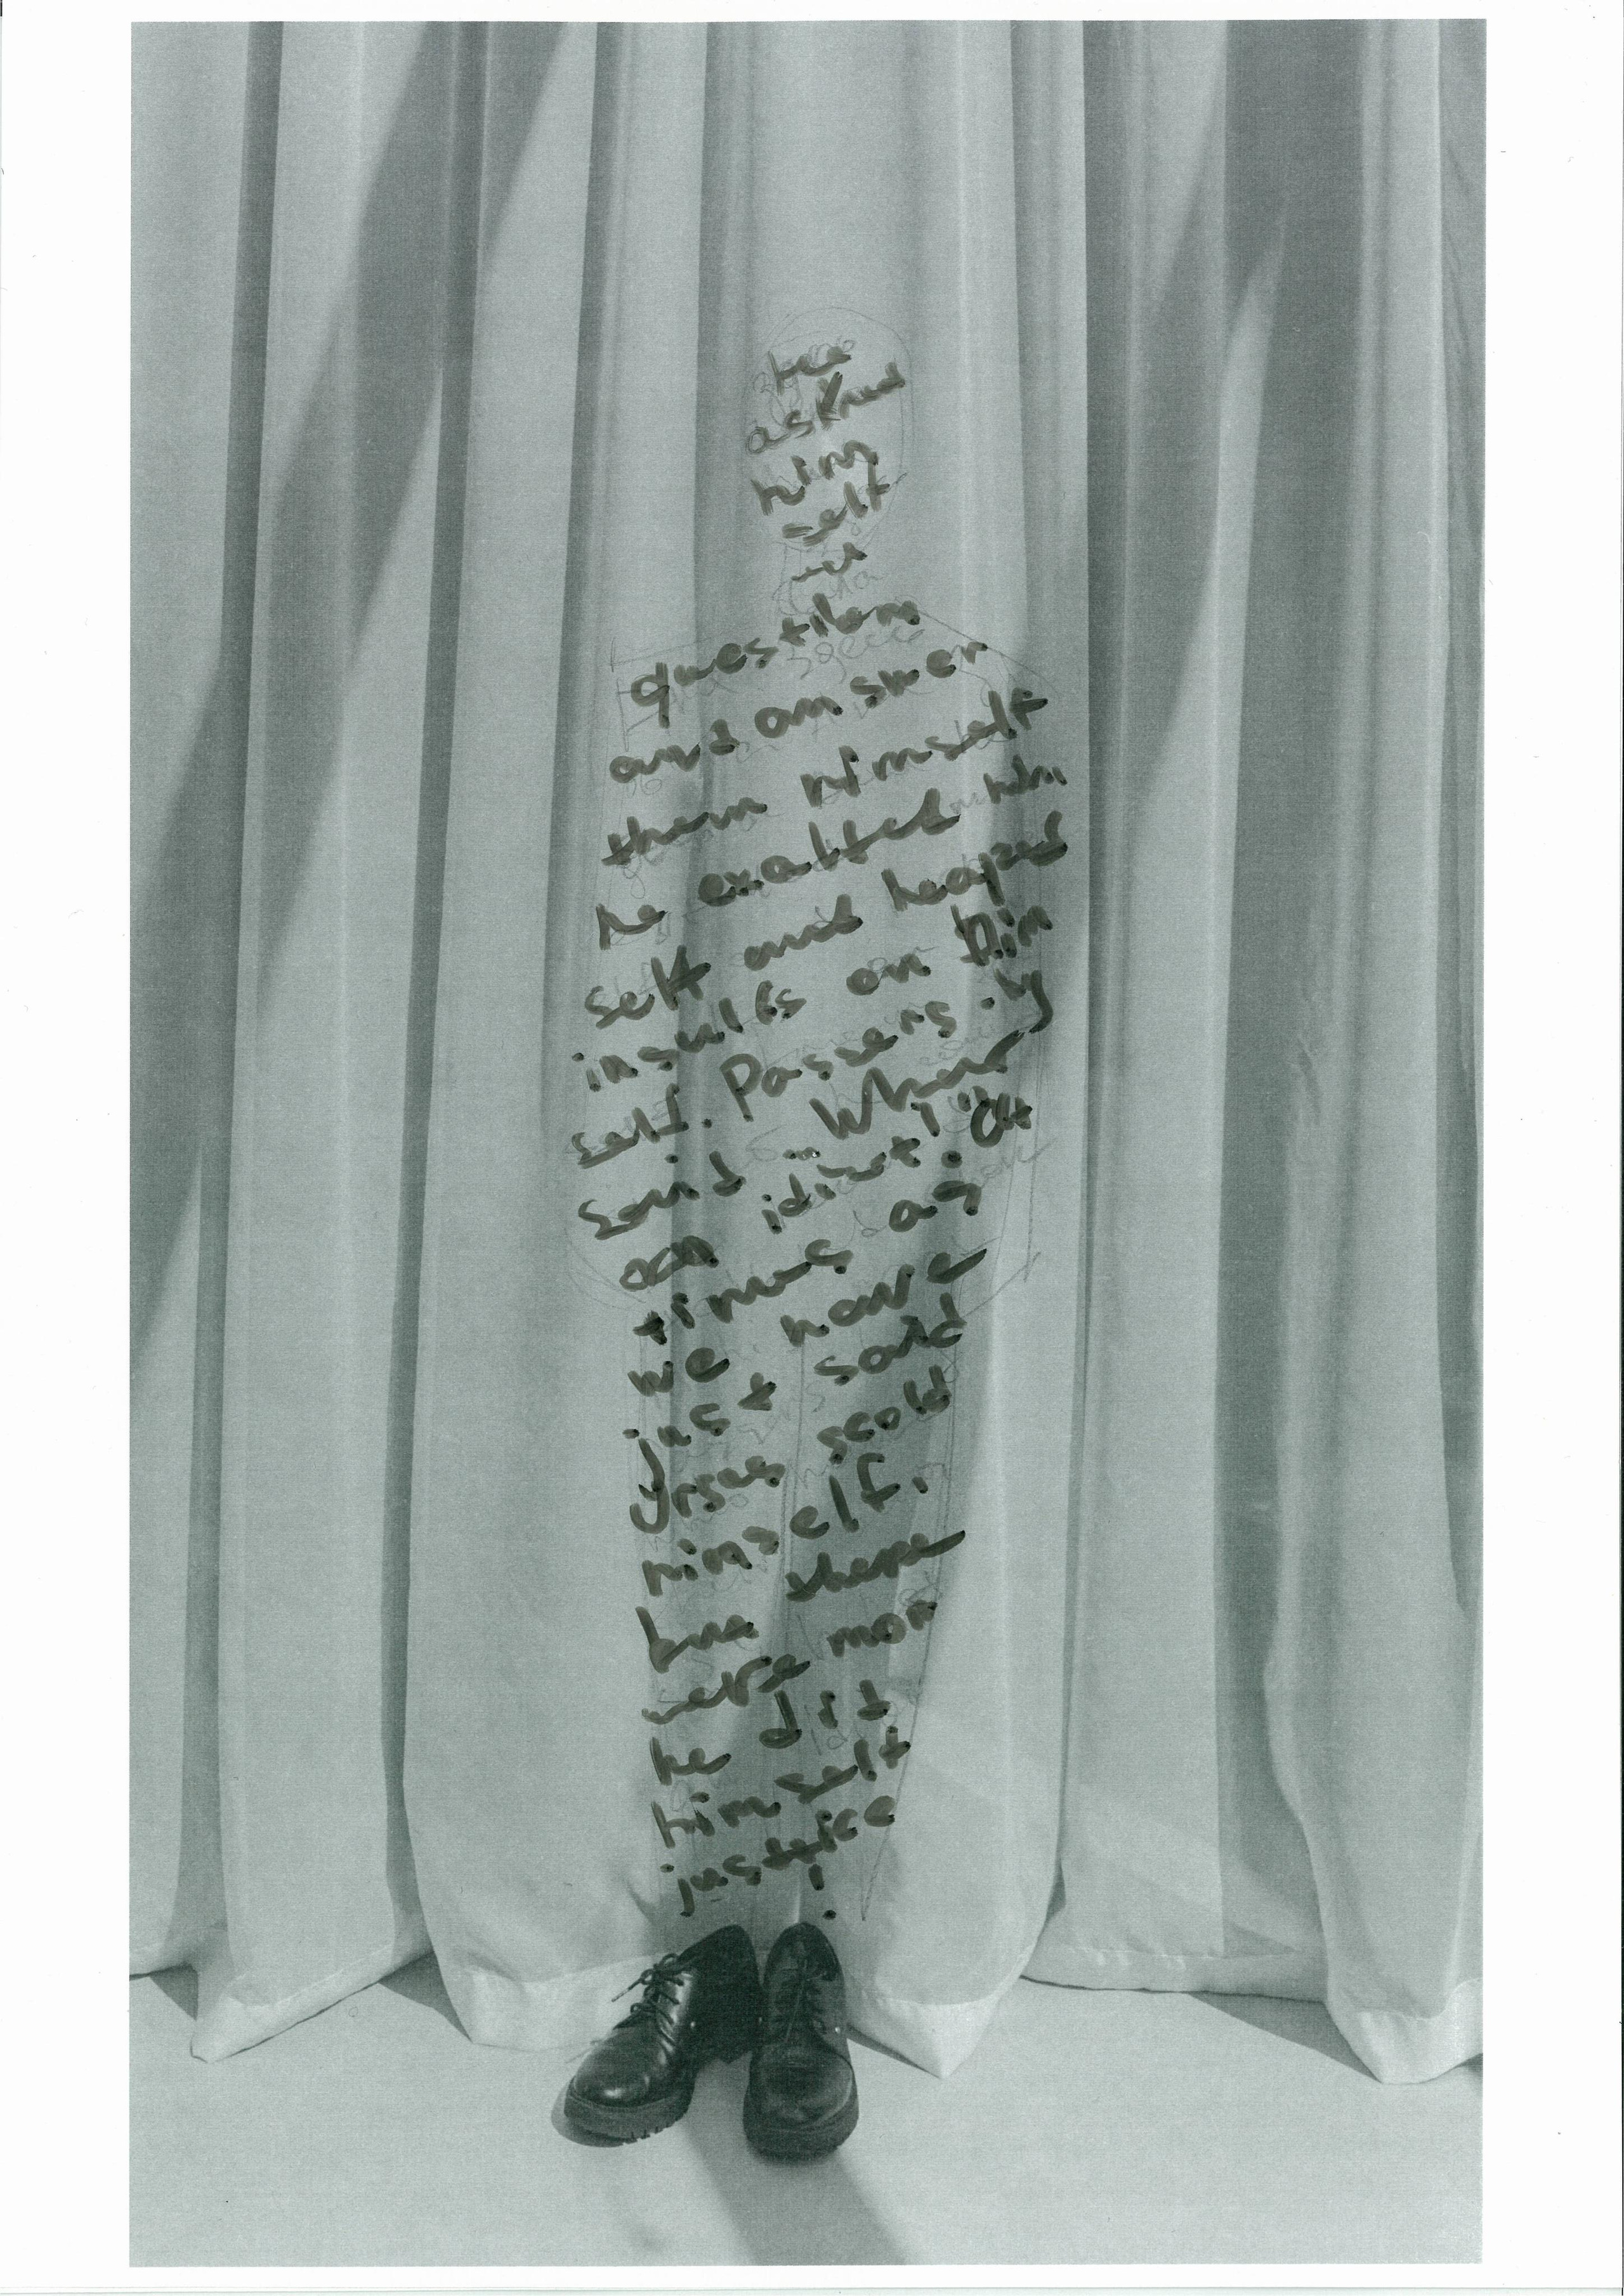 he
asked
him
self
question
and answer
them himself
he exalted him
self and heaped
insults on him
self. Passers.by
said "What
an idiot!" At
times as
we have
just said
Ursus scold
himself.
but there
were mom
he did
himself
justice
!